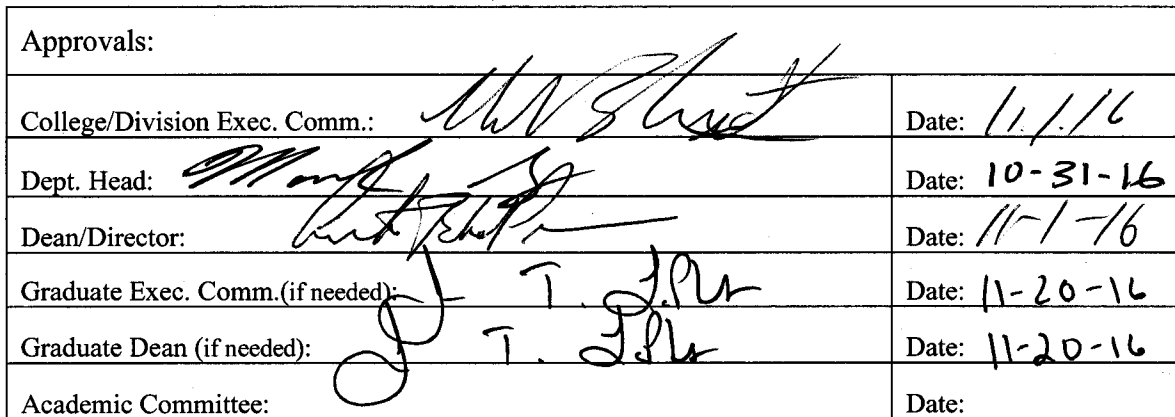 Approvals:
College/Division Exec. Comm.: Date: 11.1.16
Dept. Head: Date: 10-31-16
Dean/Director: Date: 11-1-16
Graduate Exec. Comm.(if needed): Date: 11-20-16
Graduate Dean (if needed): Date: 11-20-16
Academic Committee: Date: